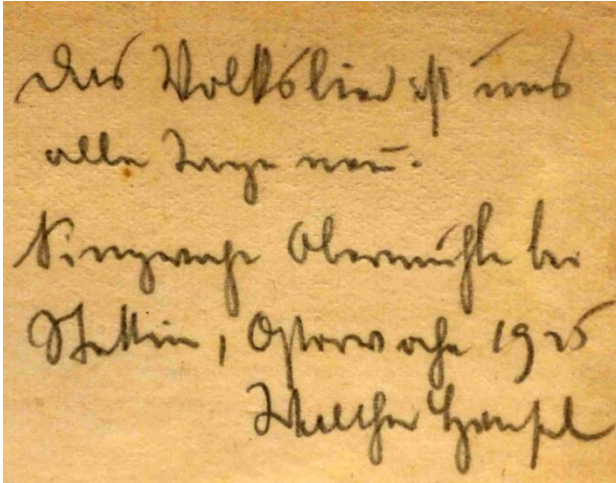 Das Volkslied ist uns
alle Tage neu.
Singwoche Obermühle bei
Stettin, Osterwoche 1925
Walther Hensel